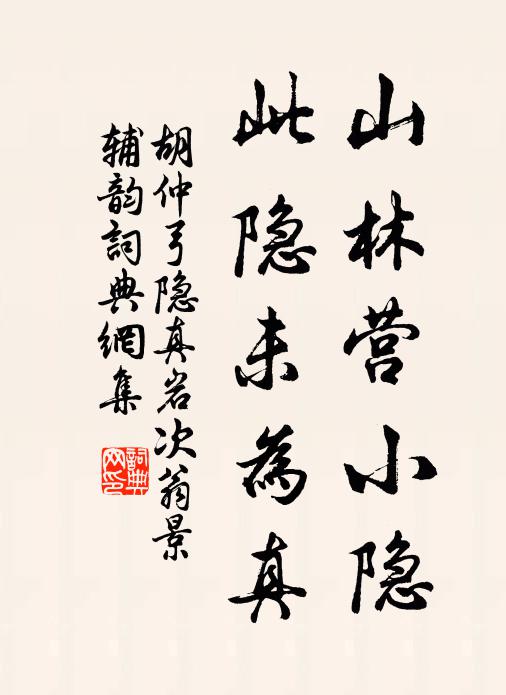 山林营小隐
此隐未為真
胡仲弓隐真岩次翁景
辅韵詞典網集
詞典网印